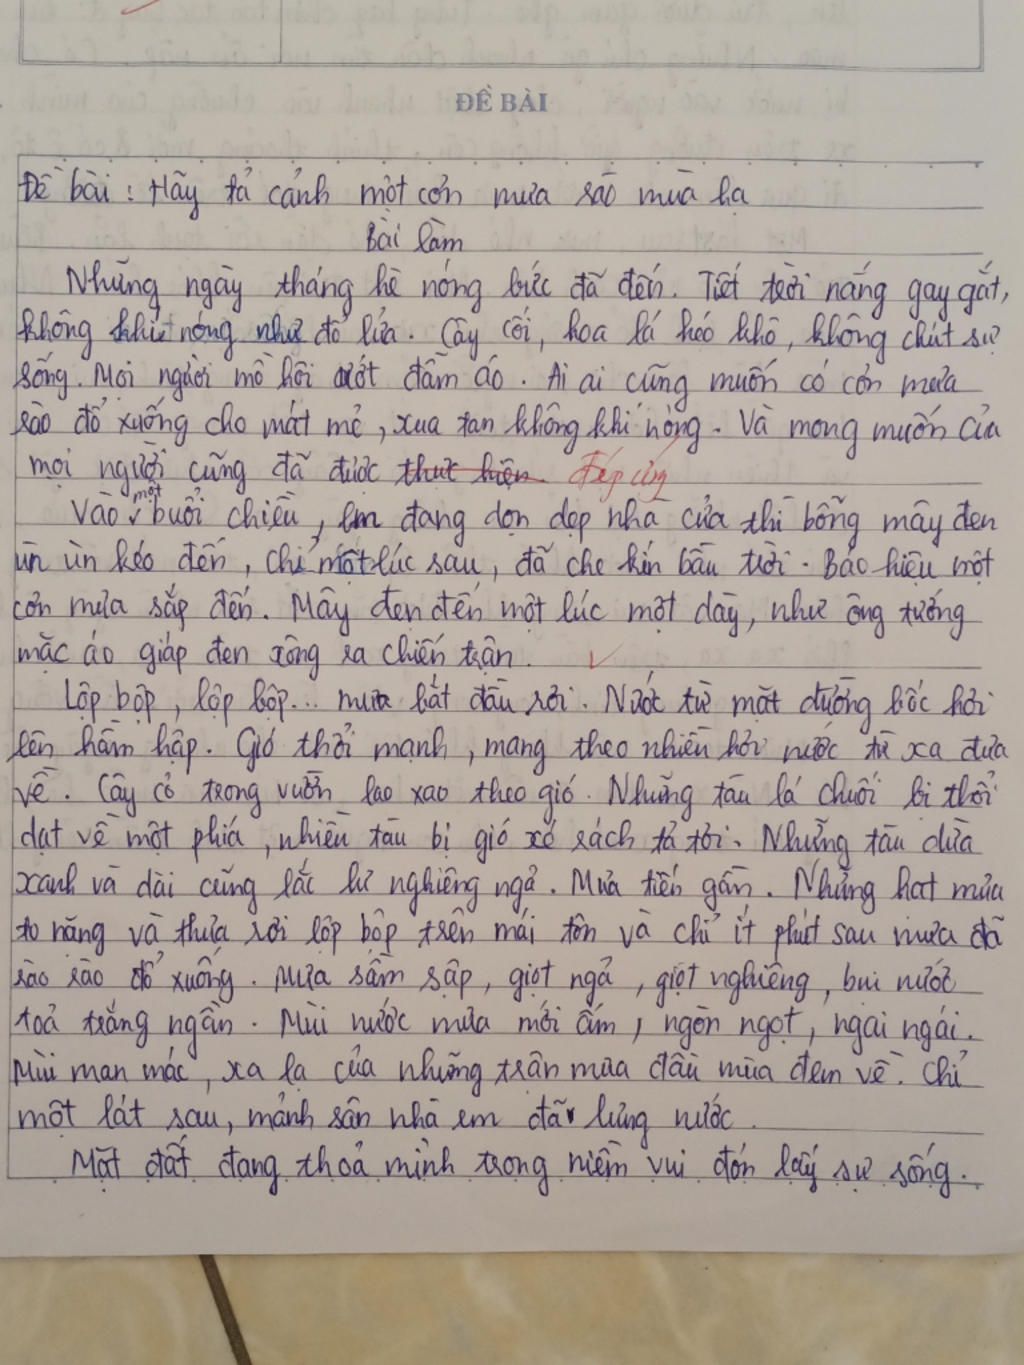 ĐỀ BÀI
Đề bài : Hãy tả cảnh một cơn mưa rào mùa hạ
Bài làm
Những ngày tháng hè nóng bức đã đến. Tiết trời nắng gay gắt,
không khí nóng như đổ lửa. Cây cối, hoa lá héo khô, không chút sự
sống. Mọi người mồ hôi ướt đẫm áo. Ai ai cũng muốn có cơn mưa
rào đổ xuống cho mát mẻ, xua tan không khí nóng. Và mong muốn của
mọi người cũng đã được thực hiện. đáp ứng
Vào một buổi chiều, em đang dọn dẹp nhà cửa thì bỗng mây đen
ùn ùn kéo đến, chỉ một lúc sau, đã che kín bầu trời. Báo hiệu một
cơn mưa sắp đến. Mây đen đến một lúc một dày, như ông tướng
mặc áo giáp đen xông ra chiến trận.
Lộp bộp, lộp bộp... mưa bắt đầu rơi. Nước từ mặt đường bốc hơi
lên hầm hập. Gió thổi mạnh, mang theo nhiều hơi nước từ xa đưa
về. Cây cỏ trong vườn lao xao theo gió. Những tàu lá chuối bị thổi
dạt về một phía, nhiều tàu bị gió xé rách tả tơi. Những tàu dừa
xanh và dài cũng lắc lư nghiêng ngả. Mưa tiến gần. Những hạt mưa
to nặng và thưa rơi lộp bộp trên mái tôn và chỉ ít phút sau mưa đã
rào rào đổ xuống. Mưa sầm sập, giọt ngả, giọt nghiêng, bụi nước
toả trắng ngần. Mùi nước mưa mới ấm, ngòn ngọt, ngai ngái.
Mùi man mác, xa lạ của những trận mưa đầu mùa đem về. Chỉ
một lát sau, mảnh sân nhà em đã lưng nước.
Mặt đất đang thoả mình trong niềm vui đón lấy sự sống.